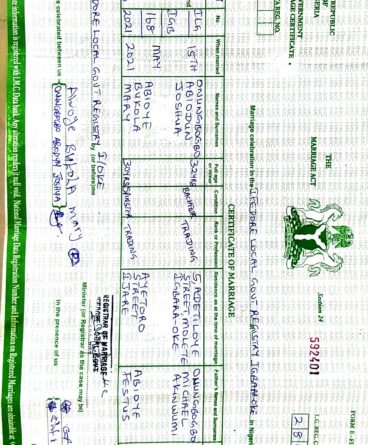 FORM E-
REPUBLIC
ERIA
THE
MARRIAGE ACT
Section 24
592401
L.G. REG.
2 8
VERNMENT
AGE CERTIFICATE
REG. NO.
Marriage celebration in the IFEDORE LOCAL GOVT REGISTRY IGBARA-OKE in Nigeria
CERTIFICATE OF MARRIAGE
No When married Names and Surnames Full age or minor Condition Rank or Profession Residence as at the time of marriage Father's Names and Surname
ILG 15TH ONUNGBOGBO 32YRS BACHELOR TRADING 5, ADETILOYE ONUNGBOGBO
IGB ABIODUN STREET, MOLETE MICHAEL
168 MAY JOSHUA IGBARA-OKE AKINWUMI
2021 2021 ABIOYE 30YRS SPINSTER TRADING AYETORO ABIOYE
BUKOLA STREET FESTUS
MARY IJARE
LOCAL GOVT REGISTRY I/OKE by (or before)me
REGISTRAR OF MARRIAGE
Minister (or Registrar as the case may be)
celebrated between us
Abioye Bukola Mary
Onungbogbo Abiodun Joshua
In the presence of us
information is registered with LM.C. Data bank. Any alteration renders it null void. National Marriage Data Registration Number and Information on Registered Marriages are obtainable at